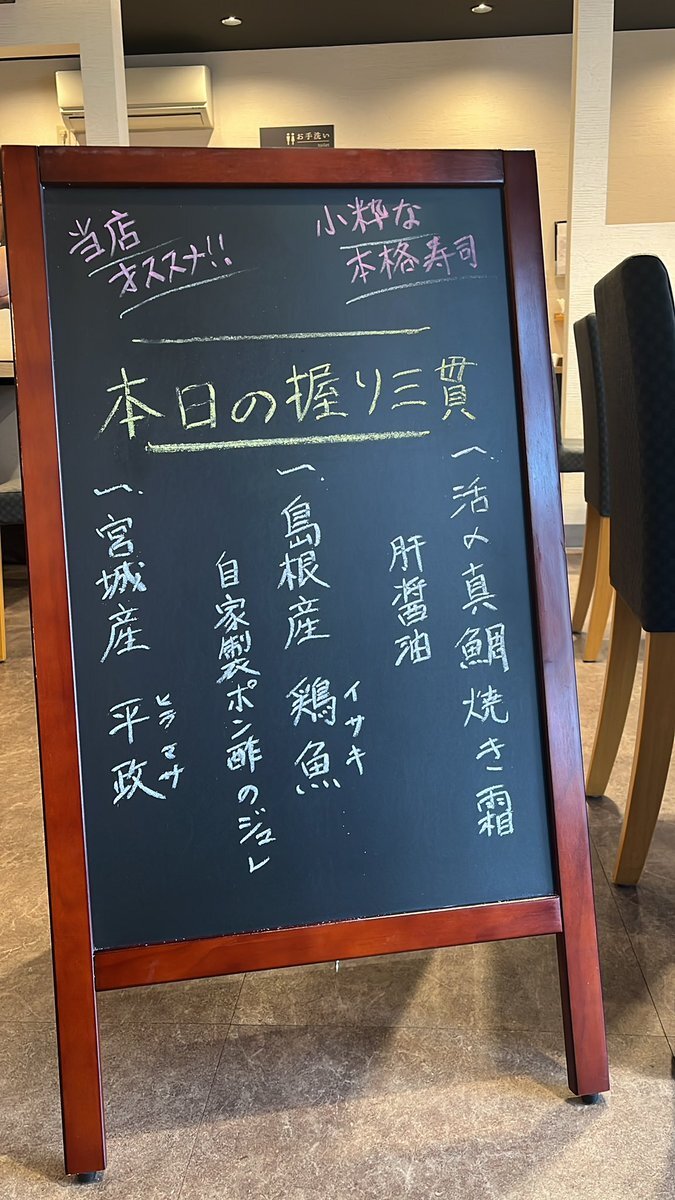 お手洗い
toilet
当店
オススメ!!
小粋な
本格寿司
本日の握り三貫
一、活〆真鯛焼き霜
肝醤油
一、島根産 鶏魚
イサキ
自家製ポン酢のジュレ
一、宮城産 平政
ヒラマサ